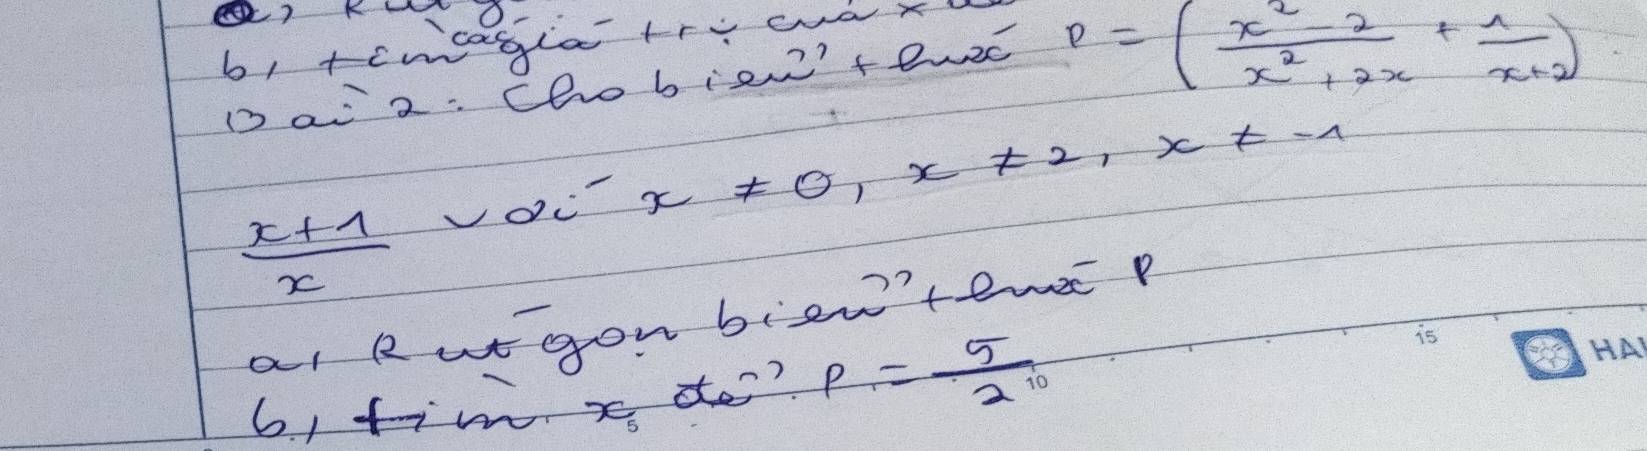 b, tìm các giá trị của x
Bài 2: Cho biểu thức P = ( x² - 2 / x² + 2x + 1 / x+2 )
x+1 / x với x ≠ 0, x ≠ 2, x ≠ -1
a, Rút gọn biểu thức P
b, tìm x để P = 5 / 2
5 10 15
HA